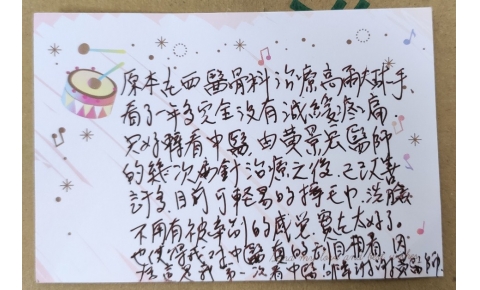 原本在西醫骨科治療高爾夫球手、
看了一年多完全沒有減緩疼痛.
只好轉看中醫. 由黃景宏醫師
的幾次病針治療之後. 已改善
許多. 目前可輕易的擰毛巾. 洗臉
不用有被牽制的感覺. 實在太好了.
也使得我對中醫真的刮目相看. 因
第一次看中醫! 師